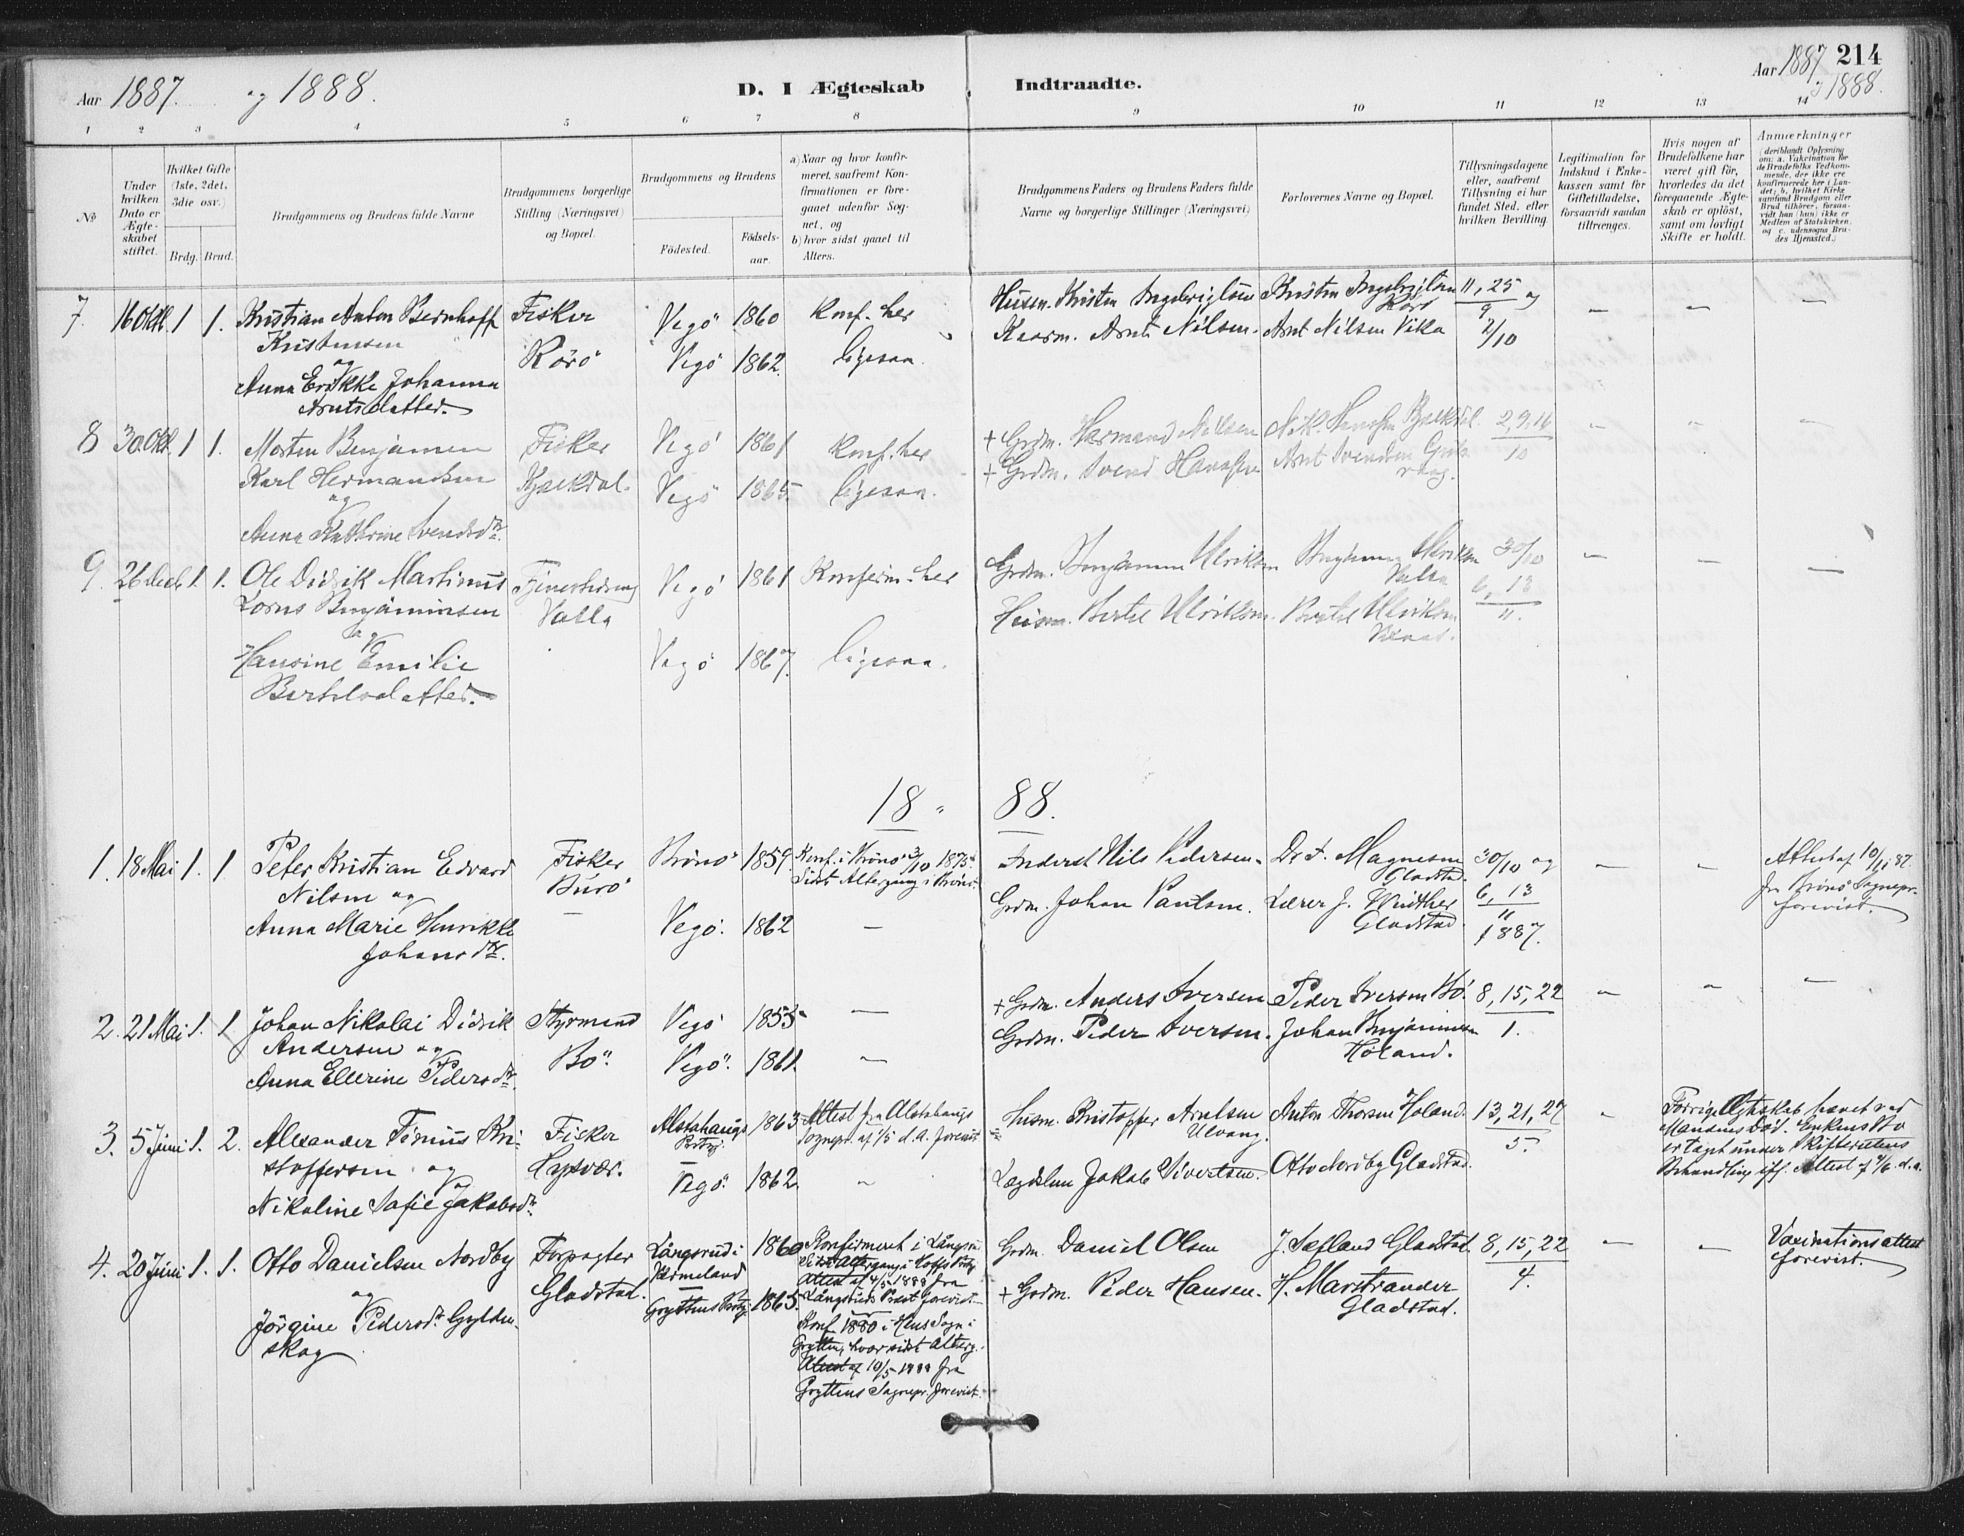 Aar 1887. og 1888.
D. I Ægteskab Indtraadte.
Aar 1887 214
1888.
1 2 3 4 5 6 7 8 9 10 11 12 13 14
No
Under hvilken Dato er Ægteskabet stiftet.
Hvilket Gifte (1ste, 2det, 3die osv.)
Brdg. Brud.
Brudgommens og Brudens fulde Navne
Brudgommens borgerlige Stilling (Næringsvei) og Bopæl.
Brudgommens og Brudens
Födested.
Födsels-aar.
a) Naar og hvor konfirmeret, saafremt Konfirmationen er foregaaet udenfor Sognet, og
b) hvor sidst gaaet til Alters.
Brudgommens Faders og Brudens Faders fulde Navne og borgerlige Stillinger (Næringsvei)
Forlovernes Navne og Bopæl.
Tillysningsdagene eller, saafremt Tillysning ei har fundet Sted, efter hvilken Bevilling.
Legitimation for Indskud i Enkekassen samt for Giftetilladelse, forsaavidt saadan tiltrænges.
Hvis nogen af Brudefolkene har været gift för, hvorledes da det foregaaende Ægteskab er oplöst, samt om lovligt Skifte er holdt.
Anmærkninger (deriblandt Oplysning om: a. Vakcination for de Brudefolks Vedkommende, der ikke ere konfirmerede her i Landet; b. hvilket Kirkesamfund Brudgom eller Brud tilhörer, forsaavidt han (hun) ikke er Medlem af Statskirken, og c. udensogns Brudes Hjemsted.)
7. 16 Okt. 1 1. Kristian Anton Bernhoff Fisker Vegö 1860 Konf. her Husm. Kristen Ingebrigtsen Kristen Ingebrigtsen 11, 25 og
Kristensen Rörö Vegö 1862. ligesaa. Kaarm. Arnt Nilsen. Arnt Nilsen Vika 9
og 2/10
Anna Erikke Johanna
Arntsdatter.
8 30 Okt. 1 1. Morten Benjamin Fisker Vegö 1861 Konf. her + Grdm. Hermand Nilsen Nik. Hansen Kjelkdal. 2, 9, 16
Karl Hermandsen Kjelkdal. Vegö 1865. ligesaa. + Grdm. Svend Hansen Arnt Svendsen 10
og
Anna Kathrine Svendsdtr.
9. 26 Decb. 1. 1. Ole Didrik Martinus Vegö 1861 Konfirm. her Grdm. Benjamin Ulriksen Benjamin Ulriksen 30/10
Lorns Benjaminsen Valla Husm. Bertel Ulriksen. Bertel Ulriksen 6, 13
og 11.
Hansine Emilie Vegö 1867. ligesaa.
Bertelsdatter.
18 88.
1. 18 Mai 1. 1 Peter Kristian Edvard Fisker Brönö 1859. Konf. i Brönö 3/10 1875. Nils Pedersen Dr. F. Magnesen 30/10 og Attest af 10/11 87.
Nilsen og Burö Sidst Altergang i Brönö. Gladstad. 6, 13 fra Brönö Sognepr.
Anna Marie Henrikke Vegö. 1862 — Grdm. Johan Paulsen. Lærer J. Winther 11 forevist.
Johansdtr. Gladstad. 1887.
2. 21 Mai 1. 1. Johan Nikolai Didrik Styrmand Vegö 1855 — + Grdm. Anders Iversen Peder Iversen Bö. 8, 15, 22
Andersen og Bö. Vegö. 1861. — Grdm. Peder Iversen. Johan Benjaminsen 1.
Anna Ellerine Pedersdtr. Höland.
3. 5 Juni 1. 2. Alexander Tönnus Kri- Fisker Alstahaugs 1863 Attest fra Alstahaugs Husm. Kristoffer Arntsen Anton Thorsen Höland. 13, 21, 27 Forrige Ægteskab hævet ved
stoffersen og Hysvær. Prstgj. Sognepr. af 1/5 d.A. forevist. Ulvang. 5. Mandens Död. Enkens Bo
Nikoline Sofie Jakobsdtr. Vegö. 1862 Lægdslem Jakob Sivertsen. Otto Nordby Gladstad. er tagt under Skifterettens
Behandling ifl. Attest af 4/6 d.a.
4. 20 Juni 1. 1. Otto Danielsen Nordby Forpagter Långsrud i 1860 Konfirmeret i Långsrud Grdm. Daniel Olsen J. Sefland Gladstad. 8, 15, 22 Vaxinationsattest
og Gladstad. Vermeland Sidst Altergang i Hoffs Prstgj. 4. forevist.
Attest af 4/5 1888 fra
Jörgine Pedersdtr. Gylden- Gryttens Prstgj. 1865. Långsruds Præst forevist. + Grdm. Peder Hansen. H. Marstrander
skog Konf. 1880 i Hens Sogn i Gladstad.
Grytten, hvor sidst Alterg.
Attest af 10/5 1888 fra
Gryttens Sognepr. forevist.